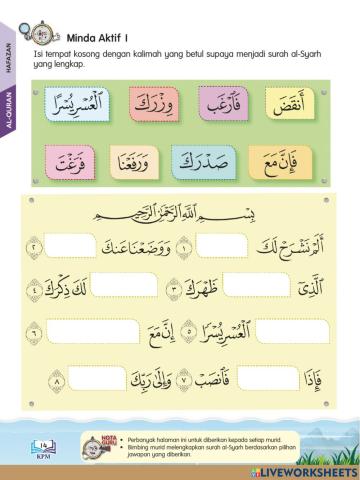 HAFAZAN
AL-QURAN
Minda Aktif 1
Isi tempat kosong dengan kalimah yang betul supaya menjadi surah al-Syarh
yang lengkap.
أَنقَضَ فَٱرْغَب وِزْرَكَ ٱلْعُسْرِ يُسْرًا
فَإِنَّ مَعَ صَدْرَكَ وَرَفَعْنَا فَرَغْتَ
بِسْمِ ٱللَّهِ ٱلرَّحْمَٰنِ ٱلرَّحِيمِ
أَلَمْ نَشْرَحْ لَكَ ١ وَوَضَعْنَا عَنكَ ٢
ٱلَّذِىٓ ظَهْرَكَ ٣ لَكَ ذِكْرَكَ ٤
ٱلْعُسْرِ يُسْرًا ٥ إِنَّ مَعَ ٦
فَإِذَا فَٱنصَبْ ٧ وَإِلَىٰ رَبِّكَ ٨
14
KPM
NOTA GURU
• Perbanyak halaman ini untuk diberikan kepada setiap murid.
• Bimbing murid melengkapkan surah al-Syarh berdasarkan pilihan
jawapan yang diberikan.
LIVEWORKSHEETS